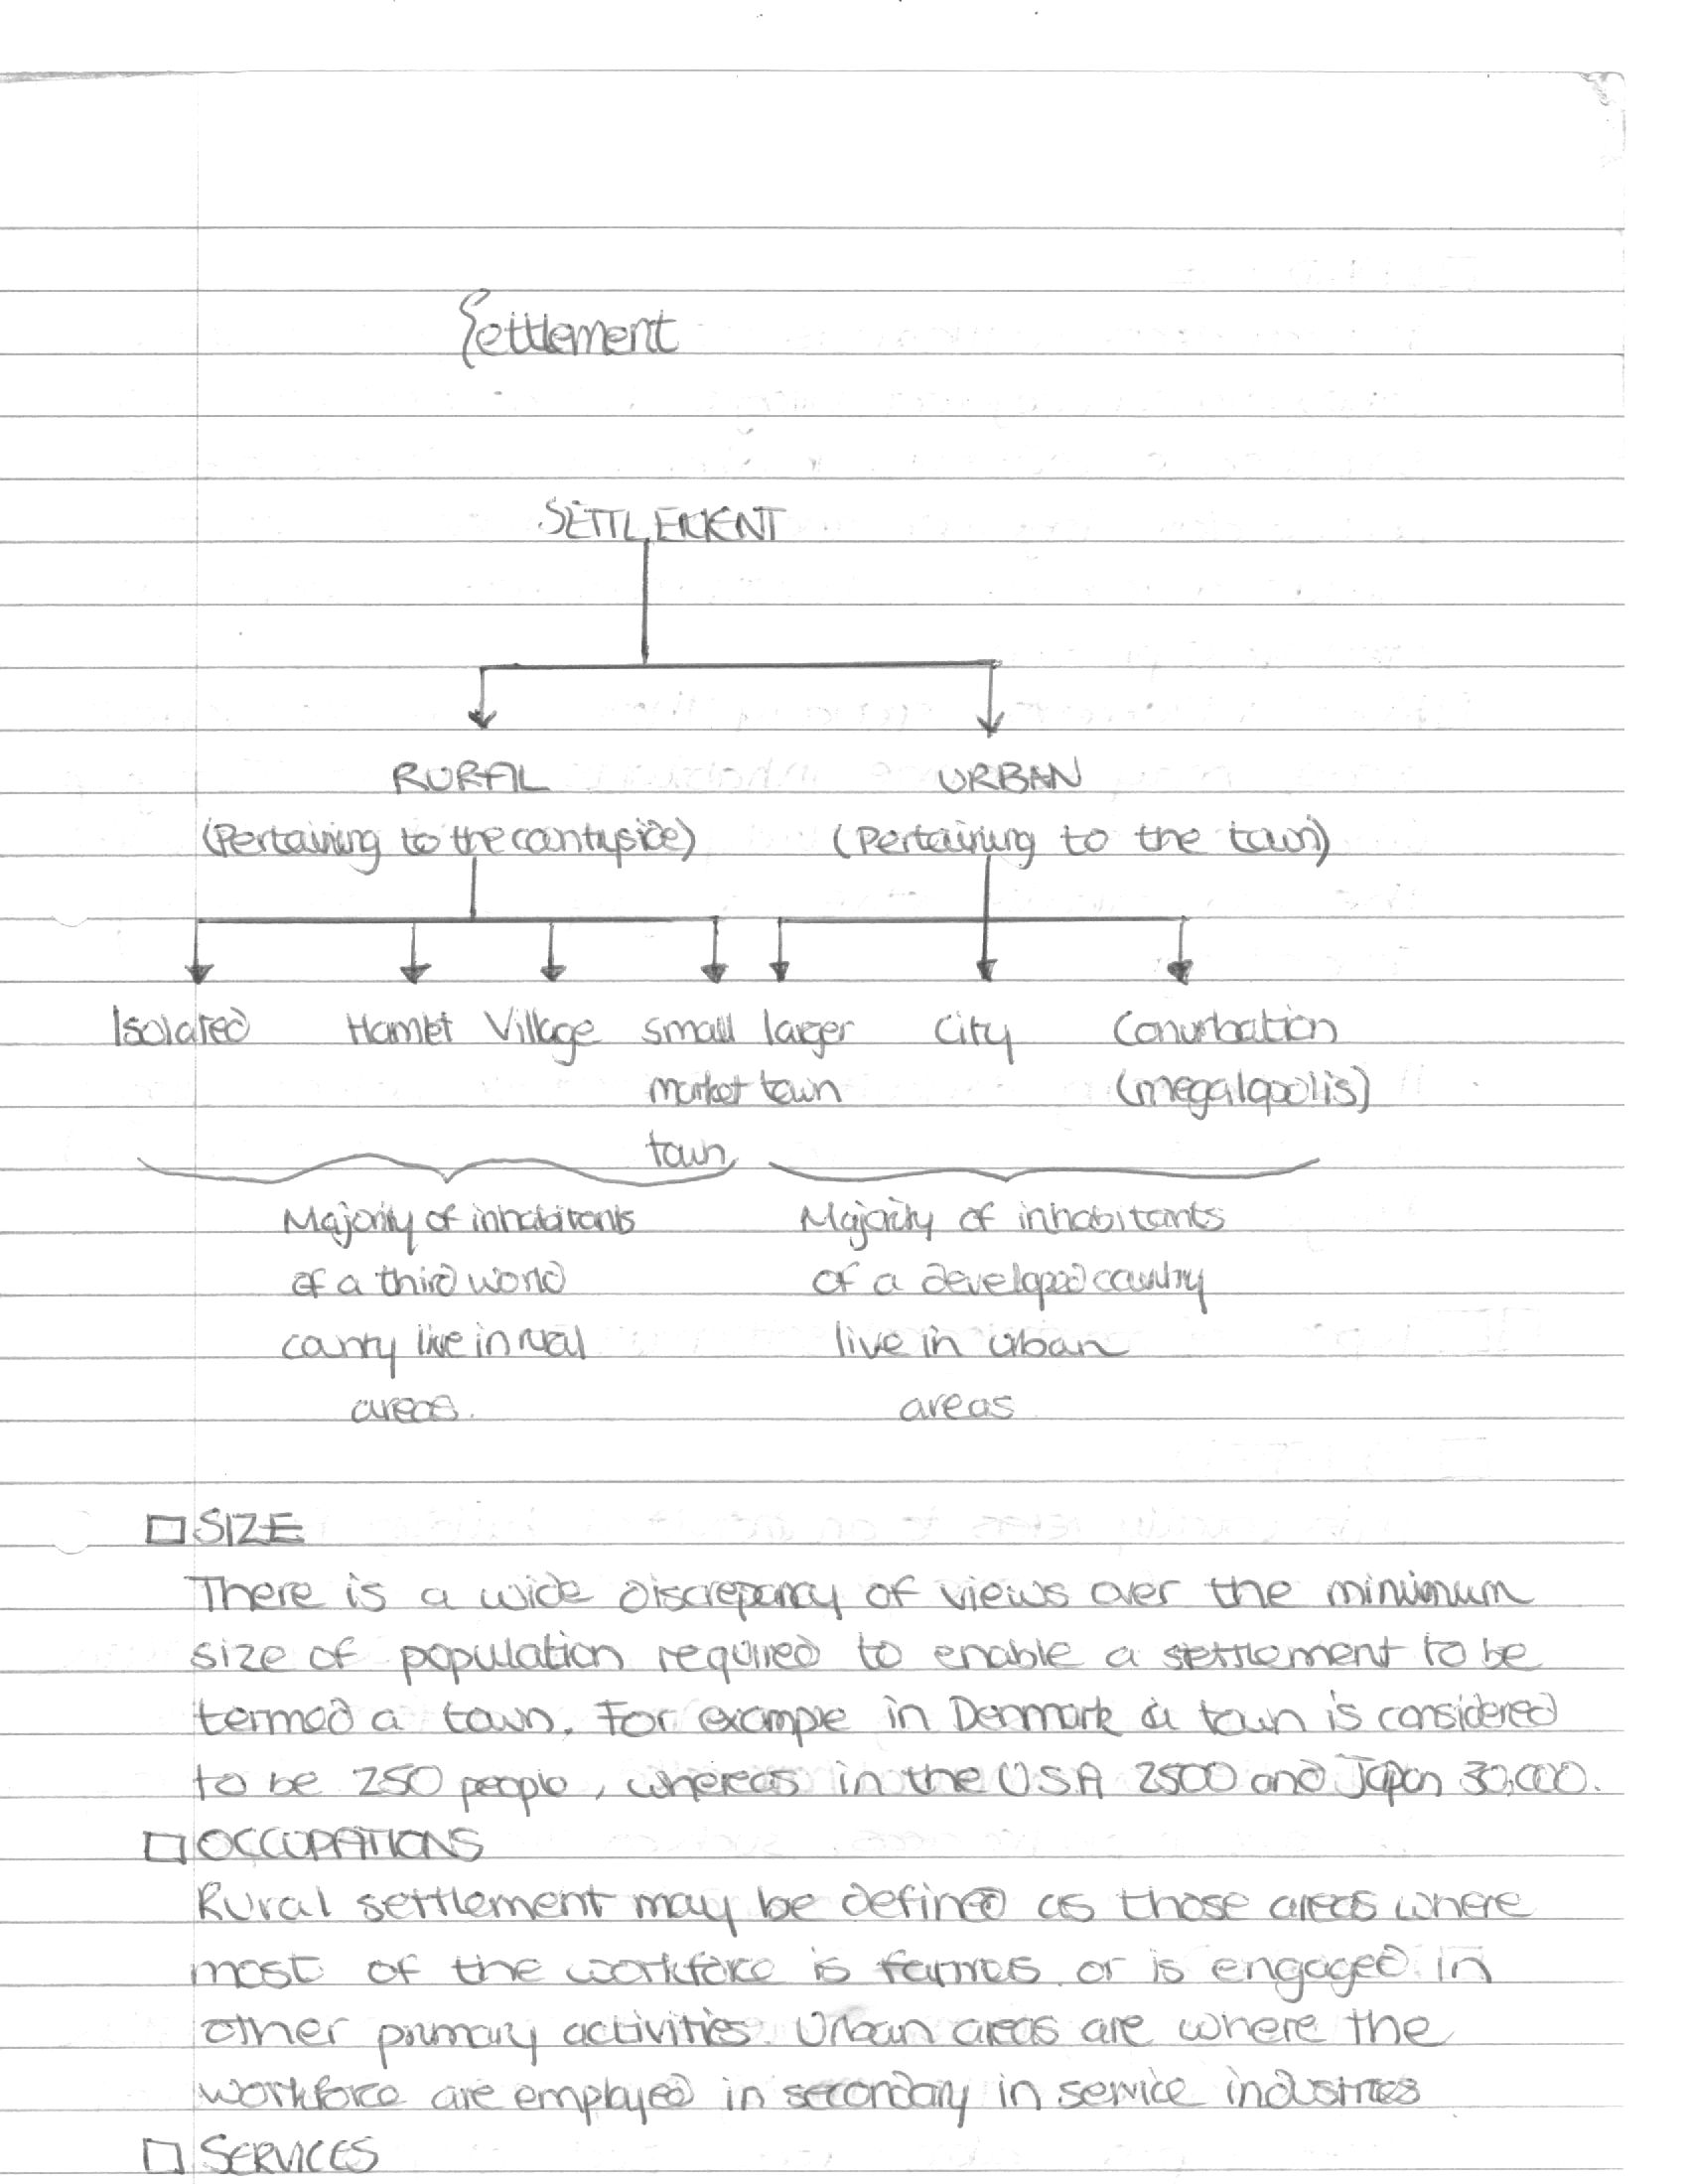 Settlement
SETTLEMENT
RURAL URBAN
(Pertaining to the countryside) (Pertaining to the town)
Isolated Hamlet Village small larger City Conurbation
market town (megalopolis)
town
Majority of inhabitants Majority of inhabitants
of a third world of a developed country
country live in rural live in urban
areas. areas
SIZE
There is a wide discrepancy of views over the minimum
size of population required to enable a settlement to be
termed a town. For example in Denmark a town is considered
to be 250 people, whereas in the USA 2500 and Japan 30,000.
OCCUPATIONS
Rural settlement may be defined as those areas where
most of the workforce is farmers or is engaged in
other primary activities. Urban areas are where the
workforce are employed in secondary in service industries
SERVICES